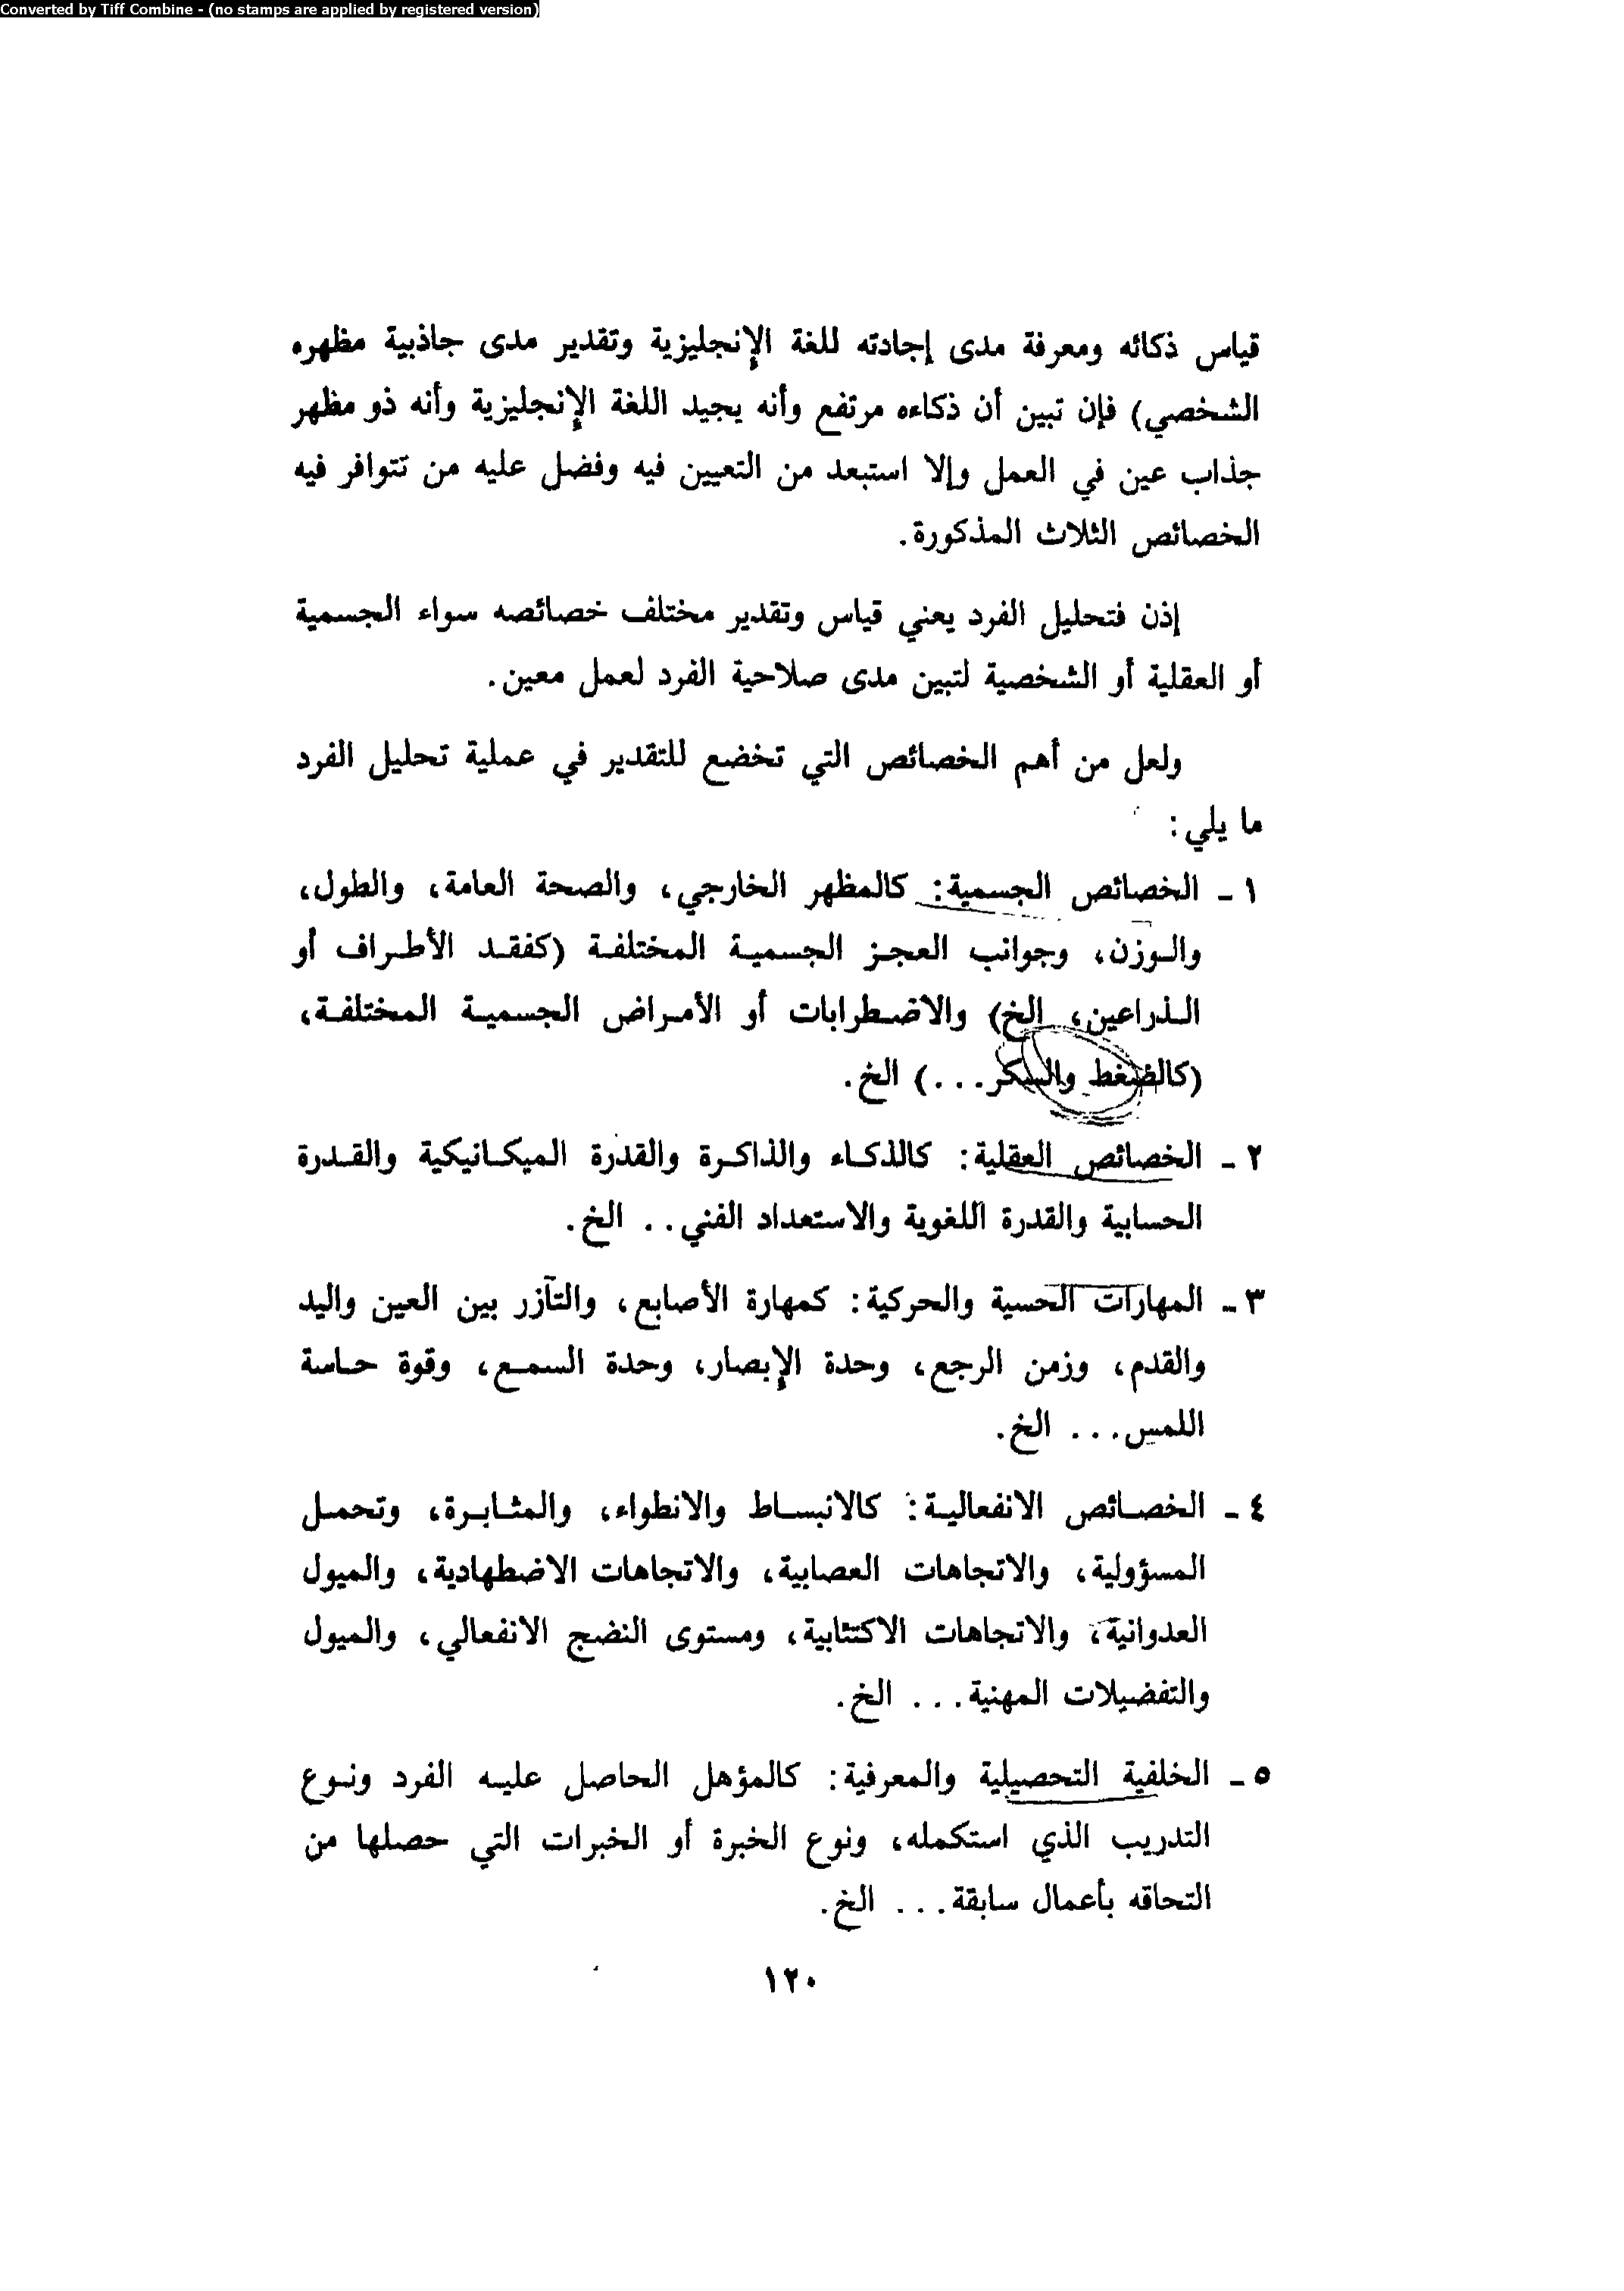 Converted by Tiff Combine - (no stamps are applied by registered version)
قياس ذكائه ومعرفة مدى إجادته للغة الإنجليزية وتقدير مدى جاذبية مظهره
الشخصي) فإن تبين أن ذكاءه مرتفع وأنه يجيد اللغة الإنجليزية وأنه ذو مظهر
جذاب عين في العمل وإلا استبعد من التعيين فيه وفضل عليه من تتوافر فيه
الخصائص الثلاث المذكورة.
إذن فتحليل الفرد يعني قياس وتقدير مختلف خصائصه سواء الجسمية
أو العقلية أو الشخصية لتبين مدى صلاحية الفرد لعمل معين.
ولعل من أهم الخصائص التي تخضع للتقدير في عملية تحليل الفرد
ما يلي:
١ - الخصائص الجسمية: كالمظهر الخارجي، والصحة العامة، والطول،
والوزن، وجوانب العجز الجسمية المختلفة (كفقد الأطراف أو
الذراعين، الخ) والاضطرابات أو الأمراض الجسمية المختلفة،
(كالضغط والسكر...) الخ.
٢ - الخصائص العقلية: كالذكاء والذاكرة والقدرة الميكانيكية والقدرة
الحسابية والقدرة اللغوية والاستعداد الفني.. الخ.
٣ - المهارات الحسية والحركية: كمهارة الأصابع، والتآزر بين العين واليد
والقدم، وزمن الرجع، وحدة الإبصار، وحدة السمع، وقوة حاسة
اللمس... الخ.
٤ - الخصائص الانفعالية: كالانبساط والانطواء، والمثابرة، وتحمل
المسؤولية، والاتجاهات العصابية، والاتجاهات الاضطهادية، والميول
العدوانية، والاتجاهات الاكتئابية، ومستوى النضج الانفعالي، والميول
والتفضيلات المهنية... الخ.
٥ - الخلفية التحصيلية والمعرفية: كالمؤهل الحاصل عليه الفرد ونوع
التدريب الذي استكمله، ونوع الخبرة أو الخبرات التي حصلها من
التحاقه بأعمال سابقة... الخ.
١٢٠